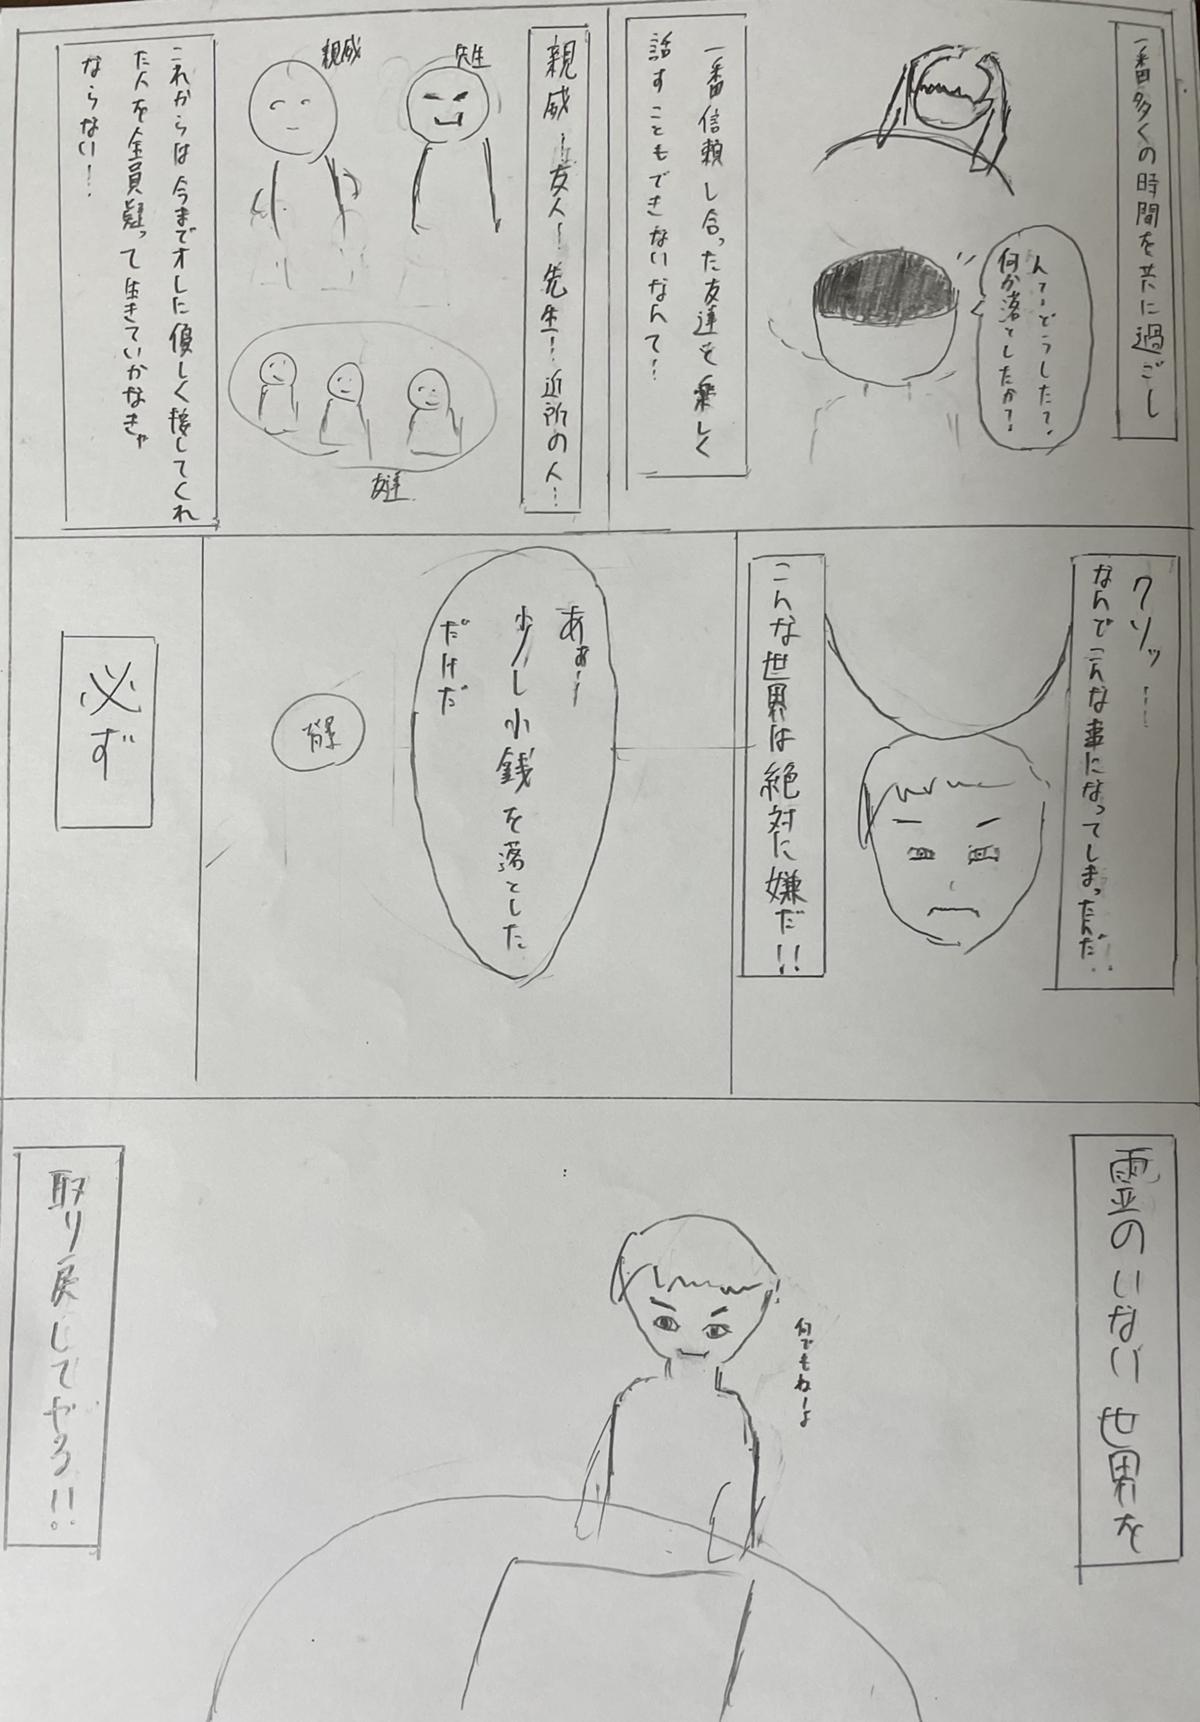 一番多くの時間を共に過ごし
んで…どうした?
何か落としたか?
一番信頼し合った友達を楽しく
話すこともできないなんて…!
親戚…!友人…!先生…!近所の人…
先生
親戚
友達
これからは今までオレに優しく接してくれ
た人を全員疑って生きていかなきゃ
ならない…!
クソッ…!
なんでこんな事になってしまったんだ…
こんな世界は絶対に嫌だ!!
あぁ…!
少し小銭を落とした
だけだ
必ず
霊のいない世界を
何でもねーよ
取り戻してやる!!